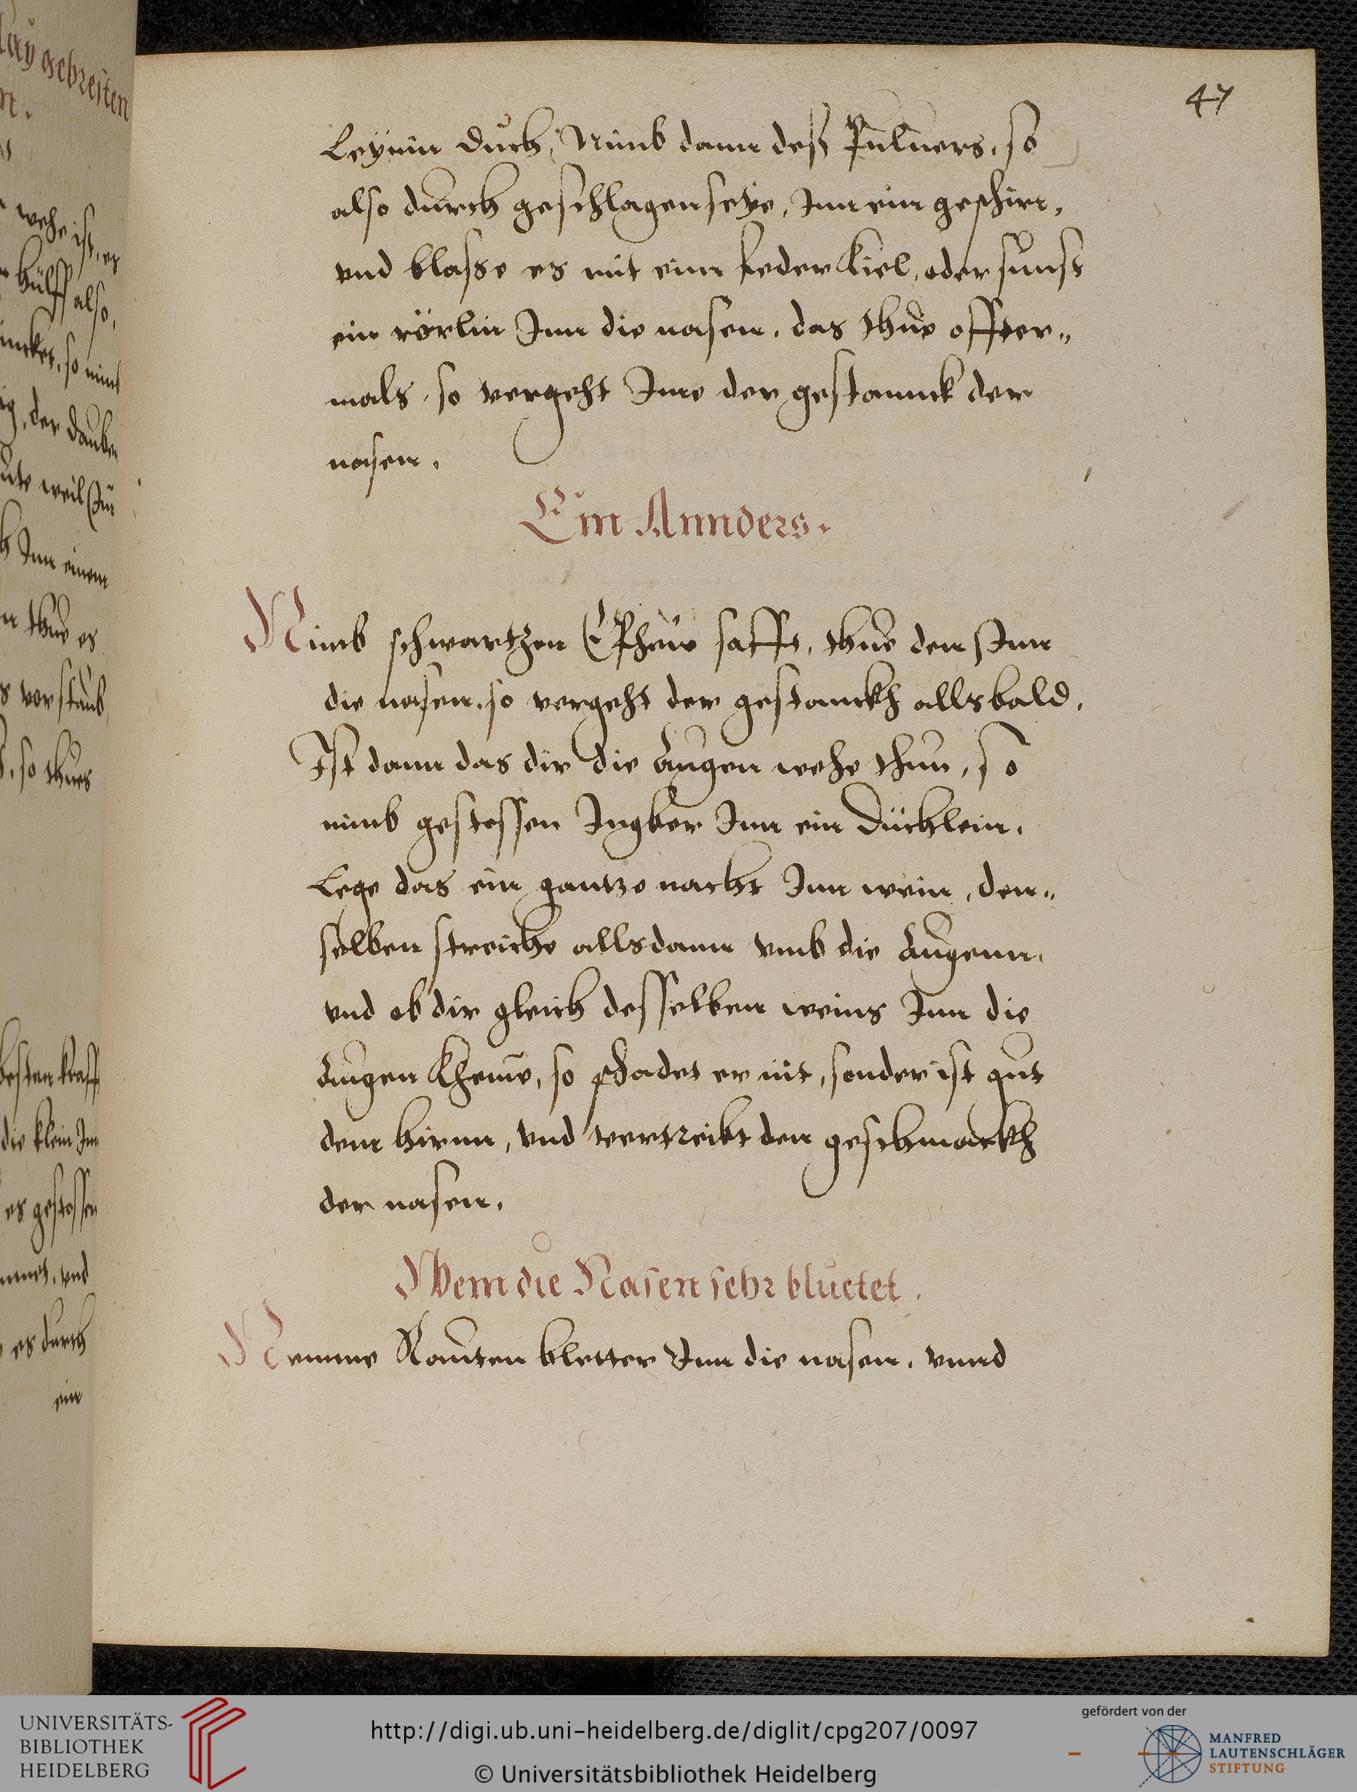 47
Leynin duch, Nimb dann deß Puluers, so
also durch geschlagen seye, Inn ein geschirr,
vnd blasse es mit eim feder kiel, oder sunst
ein rörlin Inn die nasen, das thue offter-
mals, so vergeht Ime der gestannck der
nasen.
Ein Annders.
Nimb schwartzen Epheüw safft, thue den Inn
die nasen, so vergeht der gestanckh allsbald.
Ist dann das dir die Augen wehe thun, so
nimb gestossen Ingber Inn ein düchlein,
Lege das ein gantze nacht Inn wein, den-
selben streiche allsdann vmb die Augenn,
vnd ob dir gleich desselben weins Inn die
Augen kheme, so schadet er nit, sonder ist gut
dem hirnn, vnd vertreibt den geschmackh
der nasen.
Wem die Nasen sehr bluetet.
Nemme Rauten bletter Inn die nasen, vnnd
ay gebresten
n.
wehe ist, es
hülff also,
so nimb
der dauben
weil Im
Inn einem
thue es
so thues
besten krafft
die klein Inn
es gestossen
vnd
es durch
ein
UNIVERSITÄTS-
BIBLIOTHEK
HEIDELBERG
http://digi.ub.uni-heidelberg.de/diglit/cpg207/0097
© Universitätsbibliothek Heidelberg
gefördert von der
MANFRED
LAUTENSCHLÄGER
STIFTUNG